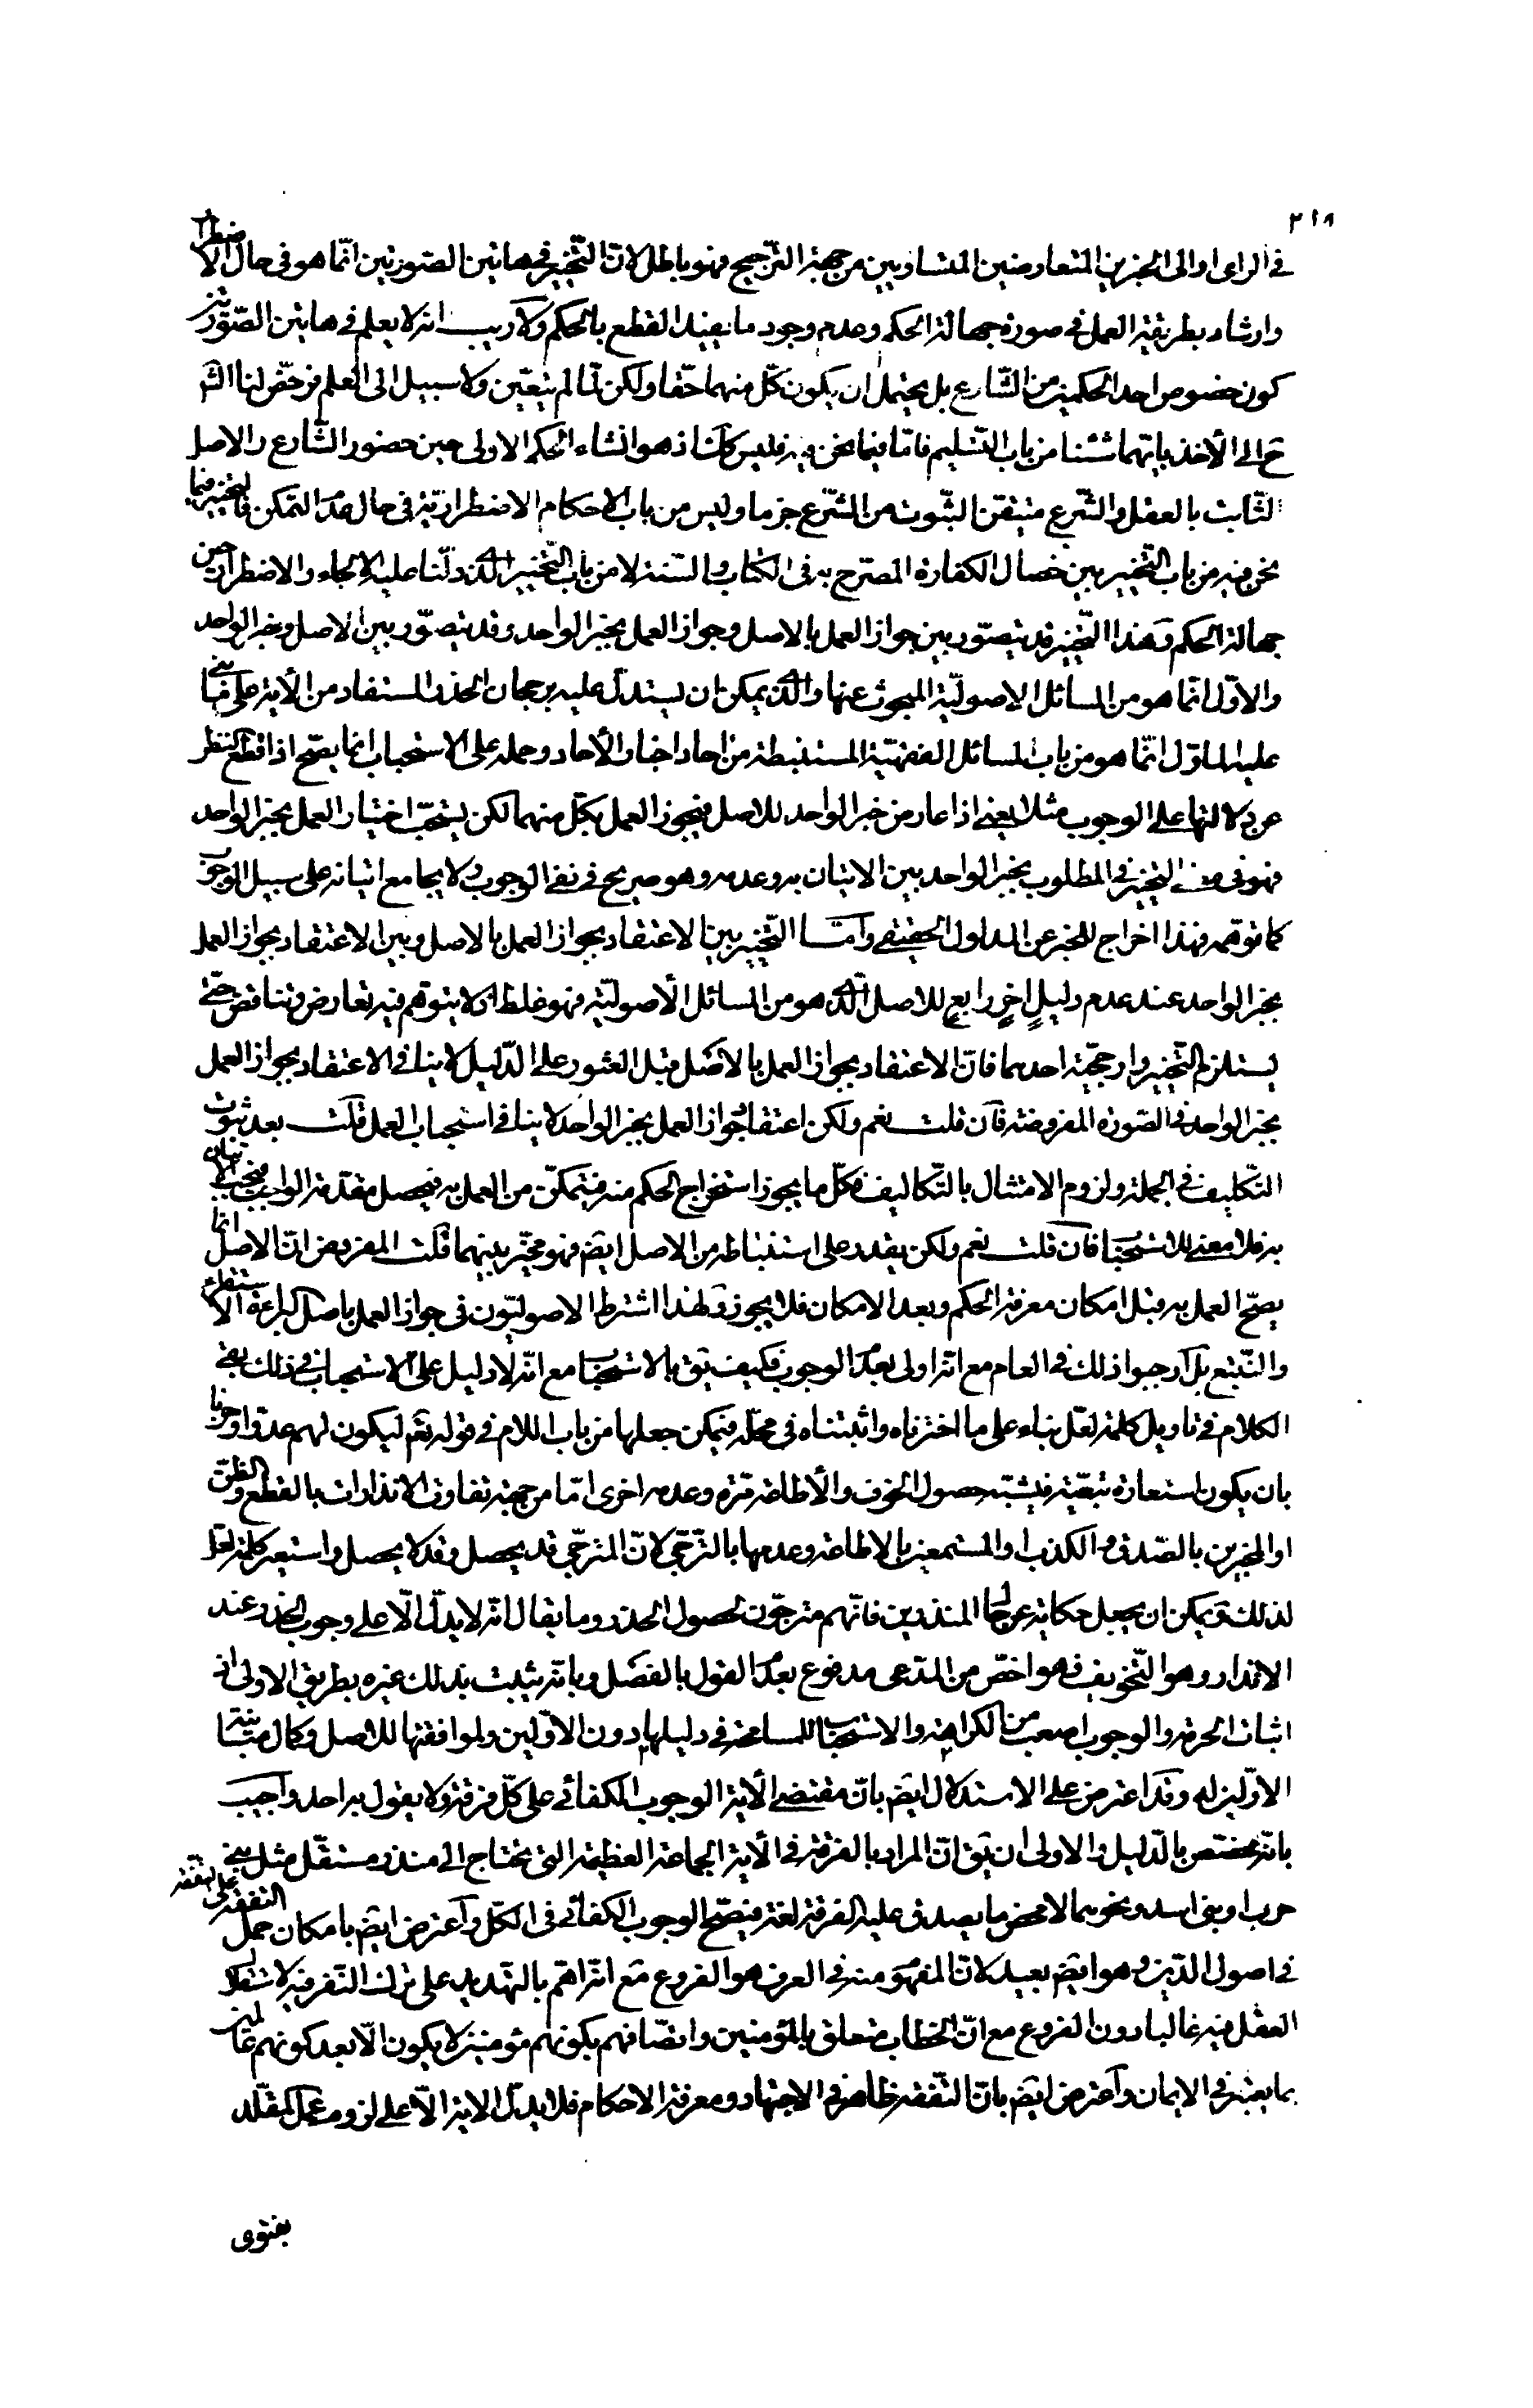 ٢١٨
في الراى او الى الخبرين المتعارضين المتساويين من جهة الترجيح فهو باطل لانّ التّخيير في هاتين الصّورتين انّما هو في حال الاضطرار
وارشاد بطريقة العمل في صورة جهالة الحكم وعدم وجود ما يفيد القطع بالحكم ولا ريب انه لا يعلم في هاتين الصّورتين
كون خصوص احد الحكمين من الشّارع بل يحتمل ان يكون كلّ منهما حقّا ولكن لمّا لم يتعيّن ولا سبيل الى العلم فرخّص لنا الشّ
ع الى الأخذ بايّهما شئنا من باب التّسليم فامّا فيما نحن فيه فليس كك اذ هو انشاء الحكم الاولى حين حضور الشّارع والاصل
الثّابت بالعقل والشّرع متيقن الثّبوت من الشّرع جزما وليس من باب الاحكام الاضطراريّة في حال عدم التمكن فالتخيير فيما
نحن فيه من باب التّخيير بين خصال الكفارة المصرّح به في الكتاب والسّنة لا من باب التّخيير الّذى دلّنا عليه الإلجاء والاضطرار حين
جهالة الحكم وهذا التّخيير قد يتصوّر بين جواز العمل بالاصل وجواز العمل بخبر الواحد وقد يتصوّر بين الاصل وخبر الواحد
والاوّل انّما هو من المسائل الاصوليّة المبحوث عنها والّذى يمكن ان يستدلّ عليه برجحان الحذر المستفاد من الأية على ما بنى
عليه الماوّل انّما هو من باب المسائل الفقهيّة المستنبطة من احاد اخبار الأحاد وحمله على الاستحباب انما يصحّ اذا قطع النظر
عن دلالتها على الوجوب مثلا يعني اذا عارض خبر الواحد للاصل فيجوز العمل بكلّ منهما لكن يستحبّ اختيار العمل بخبر الواحد
فهو في معنى التّخيير في المطلوب بخبر الواحد بين الاتيان به وعدمه وهو صريح في نفى الوجوب ولا يجامع اتيانه على سبيل الوجوب
كما توهّمه فهذا اخراج للخبر عن المدلول الحقيقي وامّا التّخيير بين الاعتقاد بجواز العمل بالاصل وبين الاعتقاد بجواز العمل
بخبر الواحد عند عدم دليل اخر رافع للاصل الّذى هو من المسائل الأصوليّة فهو غلط اذ لا يتوهّم فيه تعارض وتناقض حتّى
يستلزم التّخيير وارجحيّة احدهما فانّ الاعتقاد بجواز العمل بالاصل قبل العثور على الدّليل لا ينافى الاعتقاد بجواز العمل
بخبر الواحد في الصّورة المفروضة فان قلت نعم ولكن اعتقاد جواز العمل بخبر الواحد لا ينافى استحباب العمل قلت بعد ثبوت
التّكليف في الجملة ولزوم الامتثال بالتّكاليف فكلّ ما يجوز استخراج الحكم منه فيتمكّن من العمل به فيحصل مقدّمة الواجب فيجب الاتيان
به فلا معنى للاستحباب فان قلت نعم ولكن يقدر على استنباطه من الاصل ايضم فهو مخيّر بينهما قلت المفروض انّ الاصل انما
يصحّ العمل به قبل امكان معرفة الحكم وبعد الامكان فلا يجوز ولهذا اشترط الاصوليّون في جواز العمل باصل البراءة الاستقصاء
والتّتبع بل اوجبوا ذلك في العام مع انّه اولى بعدم الوجوب فكيف يقع بالاستحباب مع انّه لا دليل على الاستحباب في ذلك بقي
الكلام في تاويل كلمة لعلّ بناء على ما اخترناه واثبتناه في محلّه فيمكن جعلها من باب اللام في قوله تعم ليكون لهم عدوّا وحزنا
بان يكون استعارة تبعيّة فيشبّه حصول الخوف والأطاعة مرّة وعدمه اخرى امّا من جهة تفاوت الانذارات بالقطع والظنّ
او المخبرين بالصّدق والكذب او المستمعين بالإطاعة وعدمها بالترّجى لانّ المترجّى قد يحصل وقد لا يحصل واستعير كلمة لعلّ
لذلك ويمكن ان يجعل حكاية عن رجاء المنذرين فانّهم مترجّون لحصول الحذر وما يقال انّه لا يدلّ الّا على وجوب الحذر عند
الانذار وهو التّخويف فهو اخصّ من المدّعى مدفوع بعدم القول بالفصل وبانّه يثبت بذلك غيره بطريق الاولى اذ
اثبات الحرمة والوجوب اصعب من الكراهة والاستحباب للمسامحة في دليلهما دون الاوّلين ولموافقتها للاصل وكمال مباينة
الاوّلين له وقد اعترض على الاستدلال ايضم بانّ مقتضى الأية الوجوب الكفائى على كلّ فرقة ولا يقول به احد واجيب
بانّه مختصّ بالدّليل والاولى ان يقع انّ المراد بالفرقة في الأية الجماعة العظيمة الّتى يحتاج الى منذر مستقلّ مثل بنى
حرب او بنى اسد ونحوهما لا محض ما يصدق عليه الفرقة لغة فيصحّ الوجوب الكفائى في الكلّ واعترض ايضم بامكان حمل التفقه على التفقّه
في اصول الدّين وهو ايضم بعيد لانّ المفهوم منه في العرف هو الفروع مع انّه اهمّ بالتهديد على ترك النّفر فيه لاستقلال
العقل فيه غالبا دون الفروع مع انّ الخطاب متعلق بالمؤمنين واتّصافهم بكونهم مؤمنين لا يكون الّا بعد كونهم عالمين
بما يعتبر في الايمان واعترض ايضم بانّ التّفقه ظاهر في الاجتهاد ومعرفة الاحكام فلا يدلّ الاية الّا على لزوم عمل المقلّد
بفتوى